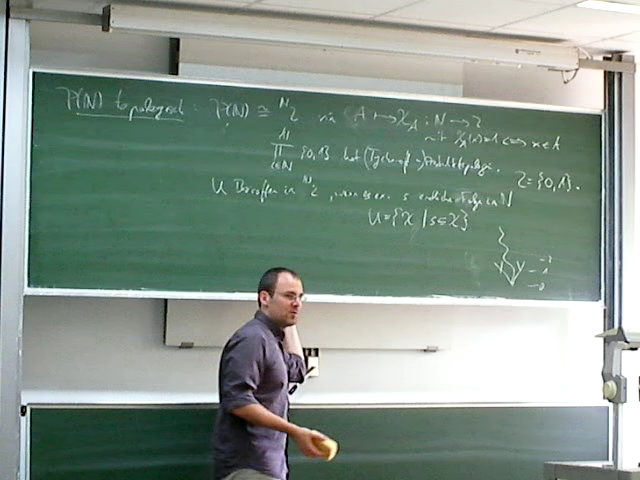 P(N) topologisch: P(N) ≅ ᴺ2 via A ↦ χ_A : N → 2
mit χ_A(x)=1 ⟺ x∈A
||
∏_{i∈N} {0,1} hat (Tychonoff-)Produkttopologie. 2={0,1}.
U Basisoffen in ᴺ2, wenn es ein s endliche Folge in N
U={χ | s⊆χ}